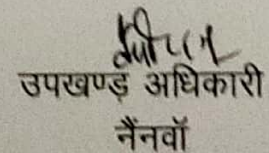 उपखण्ड़ अधिकारी
नैंनवॉ